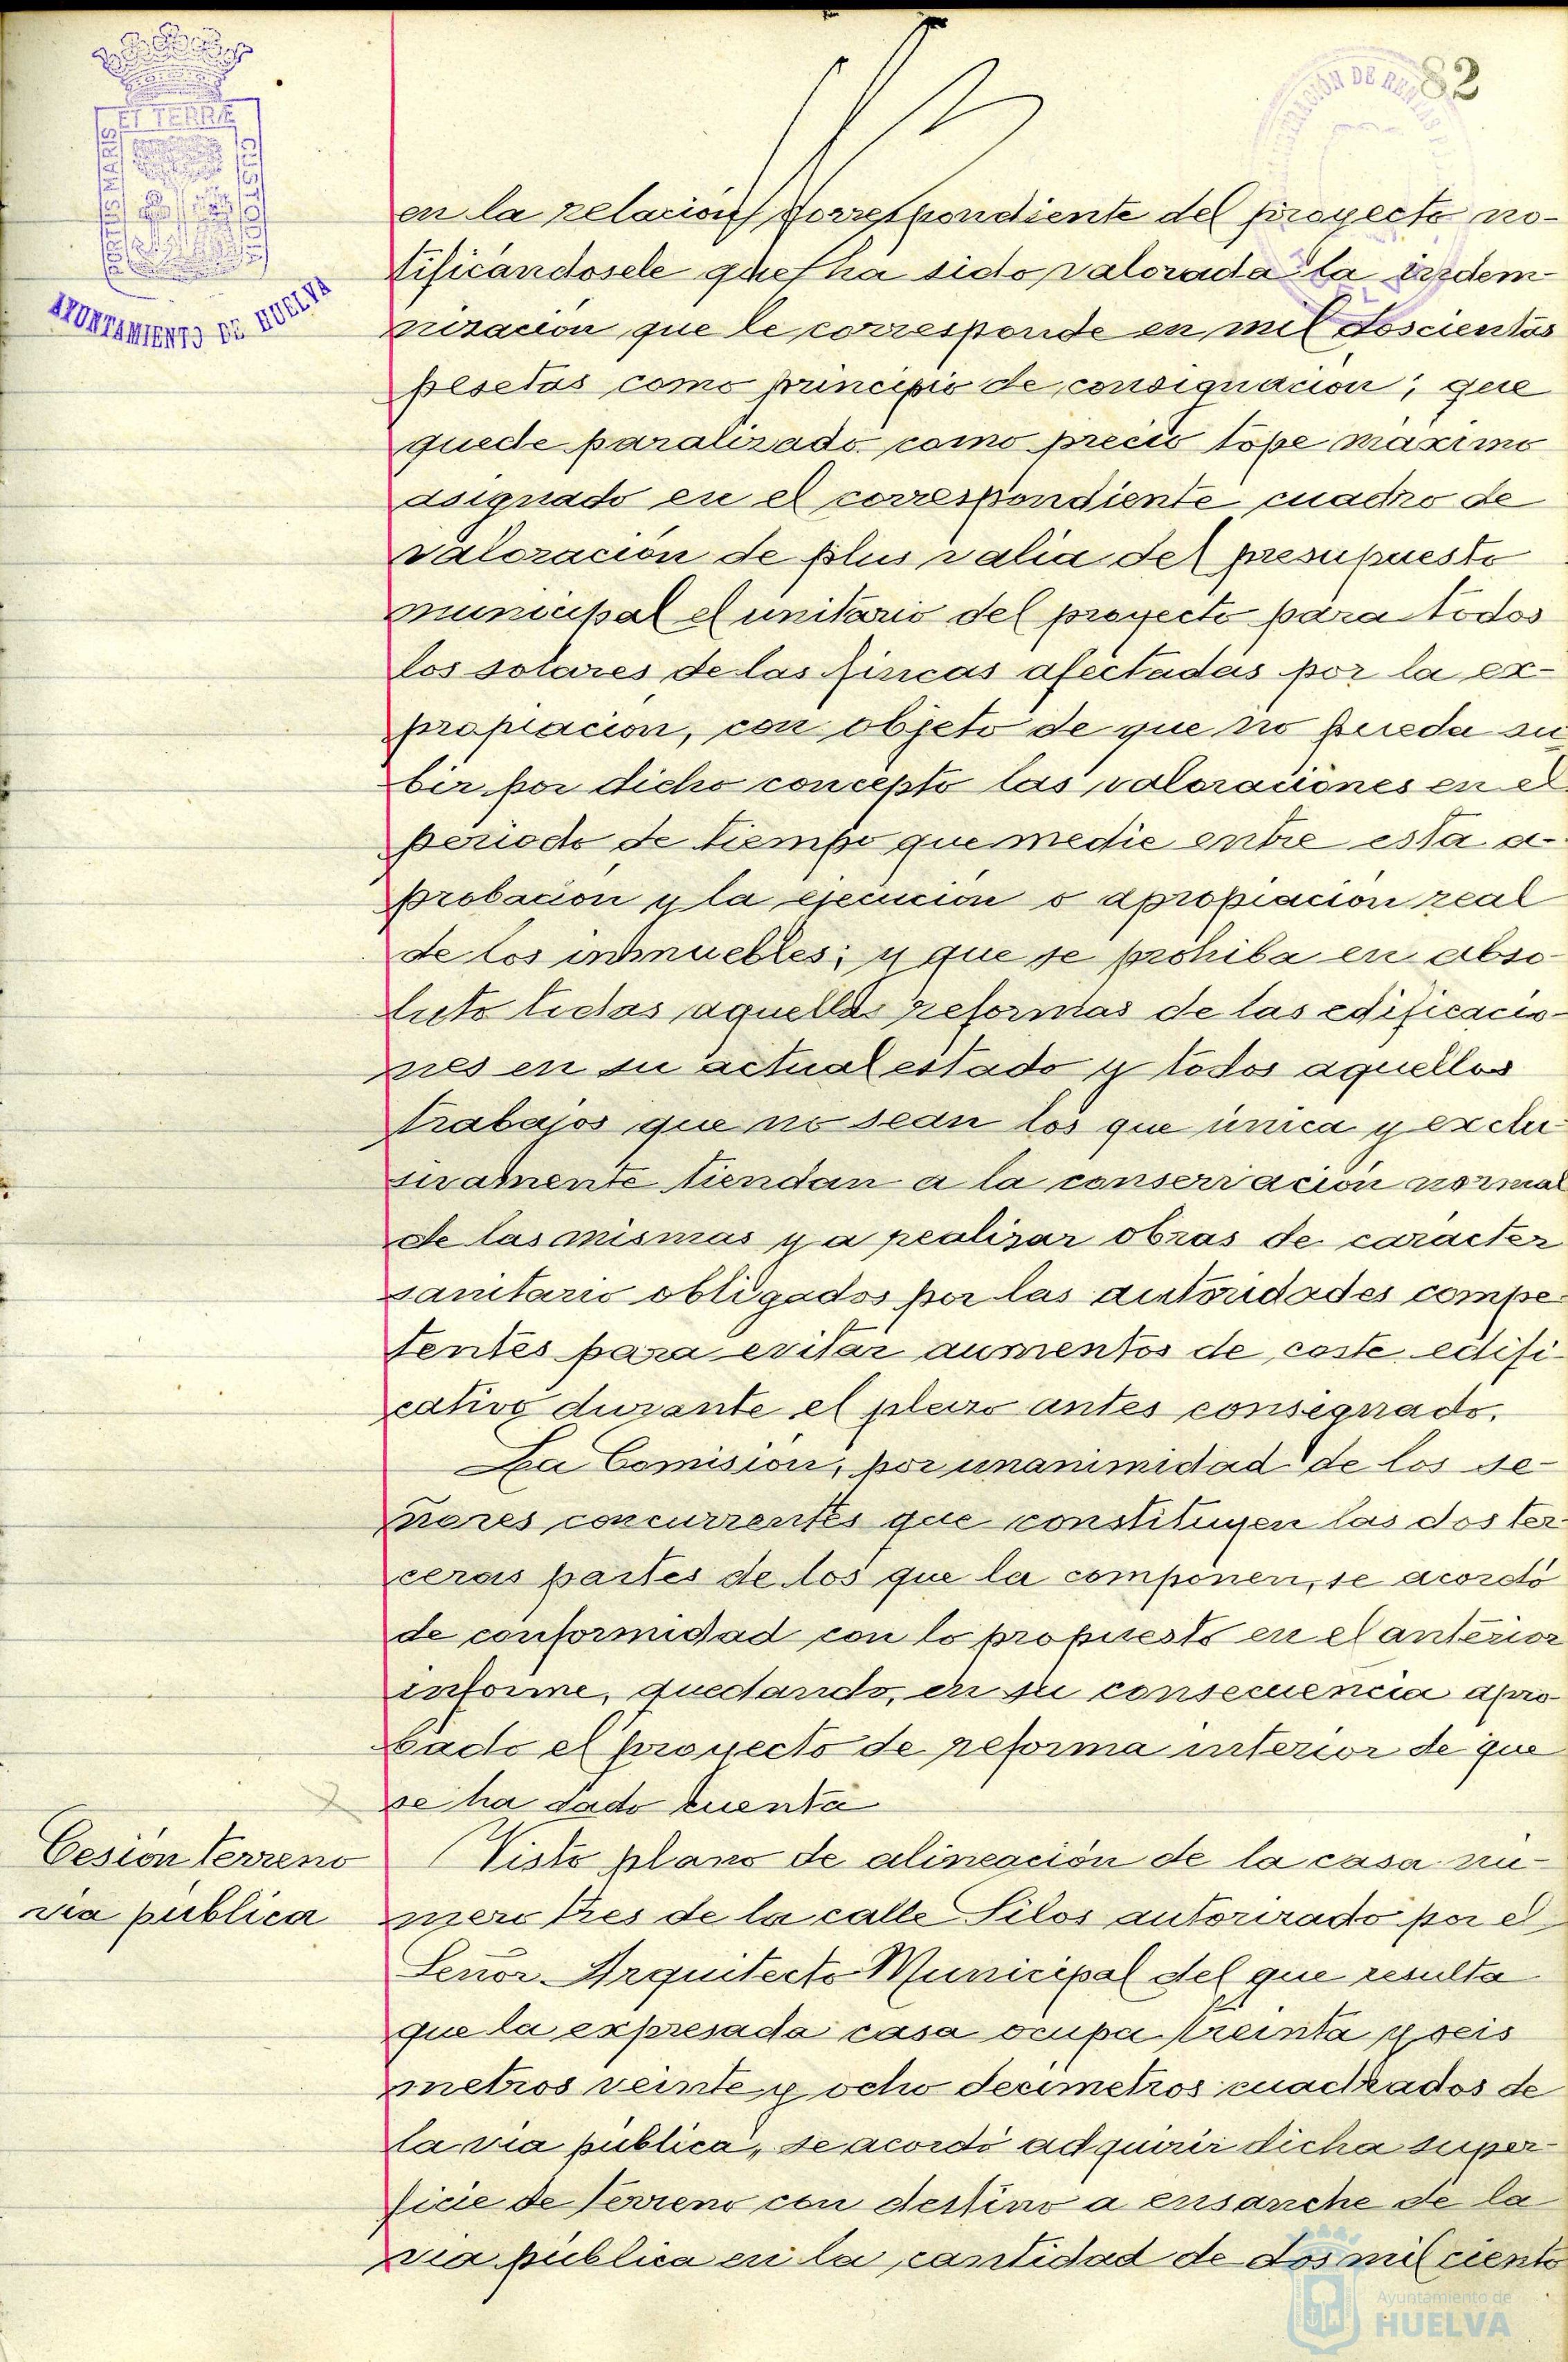 82
ET TERRÆ
AYUNTAMIENTO DE HUELVA
en la relacion correspondiente del proyecto no-
tificandosele que ha sido valorada la indem-
nizacion que le corresponde en mil doscientas
pesetas como principio de consignacion; que
quede paralizado como precio tope maximo
asignado en el correspondiente cuadro de
valoracion de plus valia del presupuesto
municipal el unitario del proyecto para todos
los solares de las fincas afectadas por la ex-
propiacion, con objeto de que no pueda su
bir por dicho concepto las valoraciones en el
periodo de tiempo que medie entre esta a-
probacion y la ejecucion o apropiacion real
de los inmuebles; y que se prohiba en abso-
luto todas aquellas reformas de las edificacio-
nes en su actual estado y todos aquellos
trabajos que no sean los que única y exclu
sivamente tiendan a la conservación normal
de las mismas y a realizar obras de caracter
sanitario obligados por las autoridades compe-
tentes para evitar aumentos de coste edifi-
cativo durante el plazo antes consignado.
La Comisión, por unanimidad de los se-
ñores concurrentes que constituyen las dos ter-
ceras partes de los que la componen, se acordó
de conformidad con lo propuesto en el anterior
informe, quedando, en su consecuencia apro-
bado el proyecto de reforma interior de que
se ha dado cuenta
Cesión terreno
via publica
Visto plano de alineación de la casa nú-
mero tres de la calle Silos autorizado por el
Señor Arquitecto Municipal del que resulta
que la expresada casa ocupa treinta y seis
metros veinte y ocho decimetros cuadrados de
la via pública, se acordó adquirir dicha super-
ficie de terreno con destino a ensanche de la
via pública en la cantidad de dos mil ciento
Ayuntamiento de
HUELVA